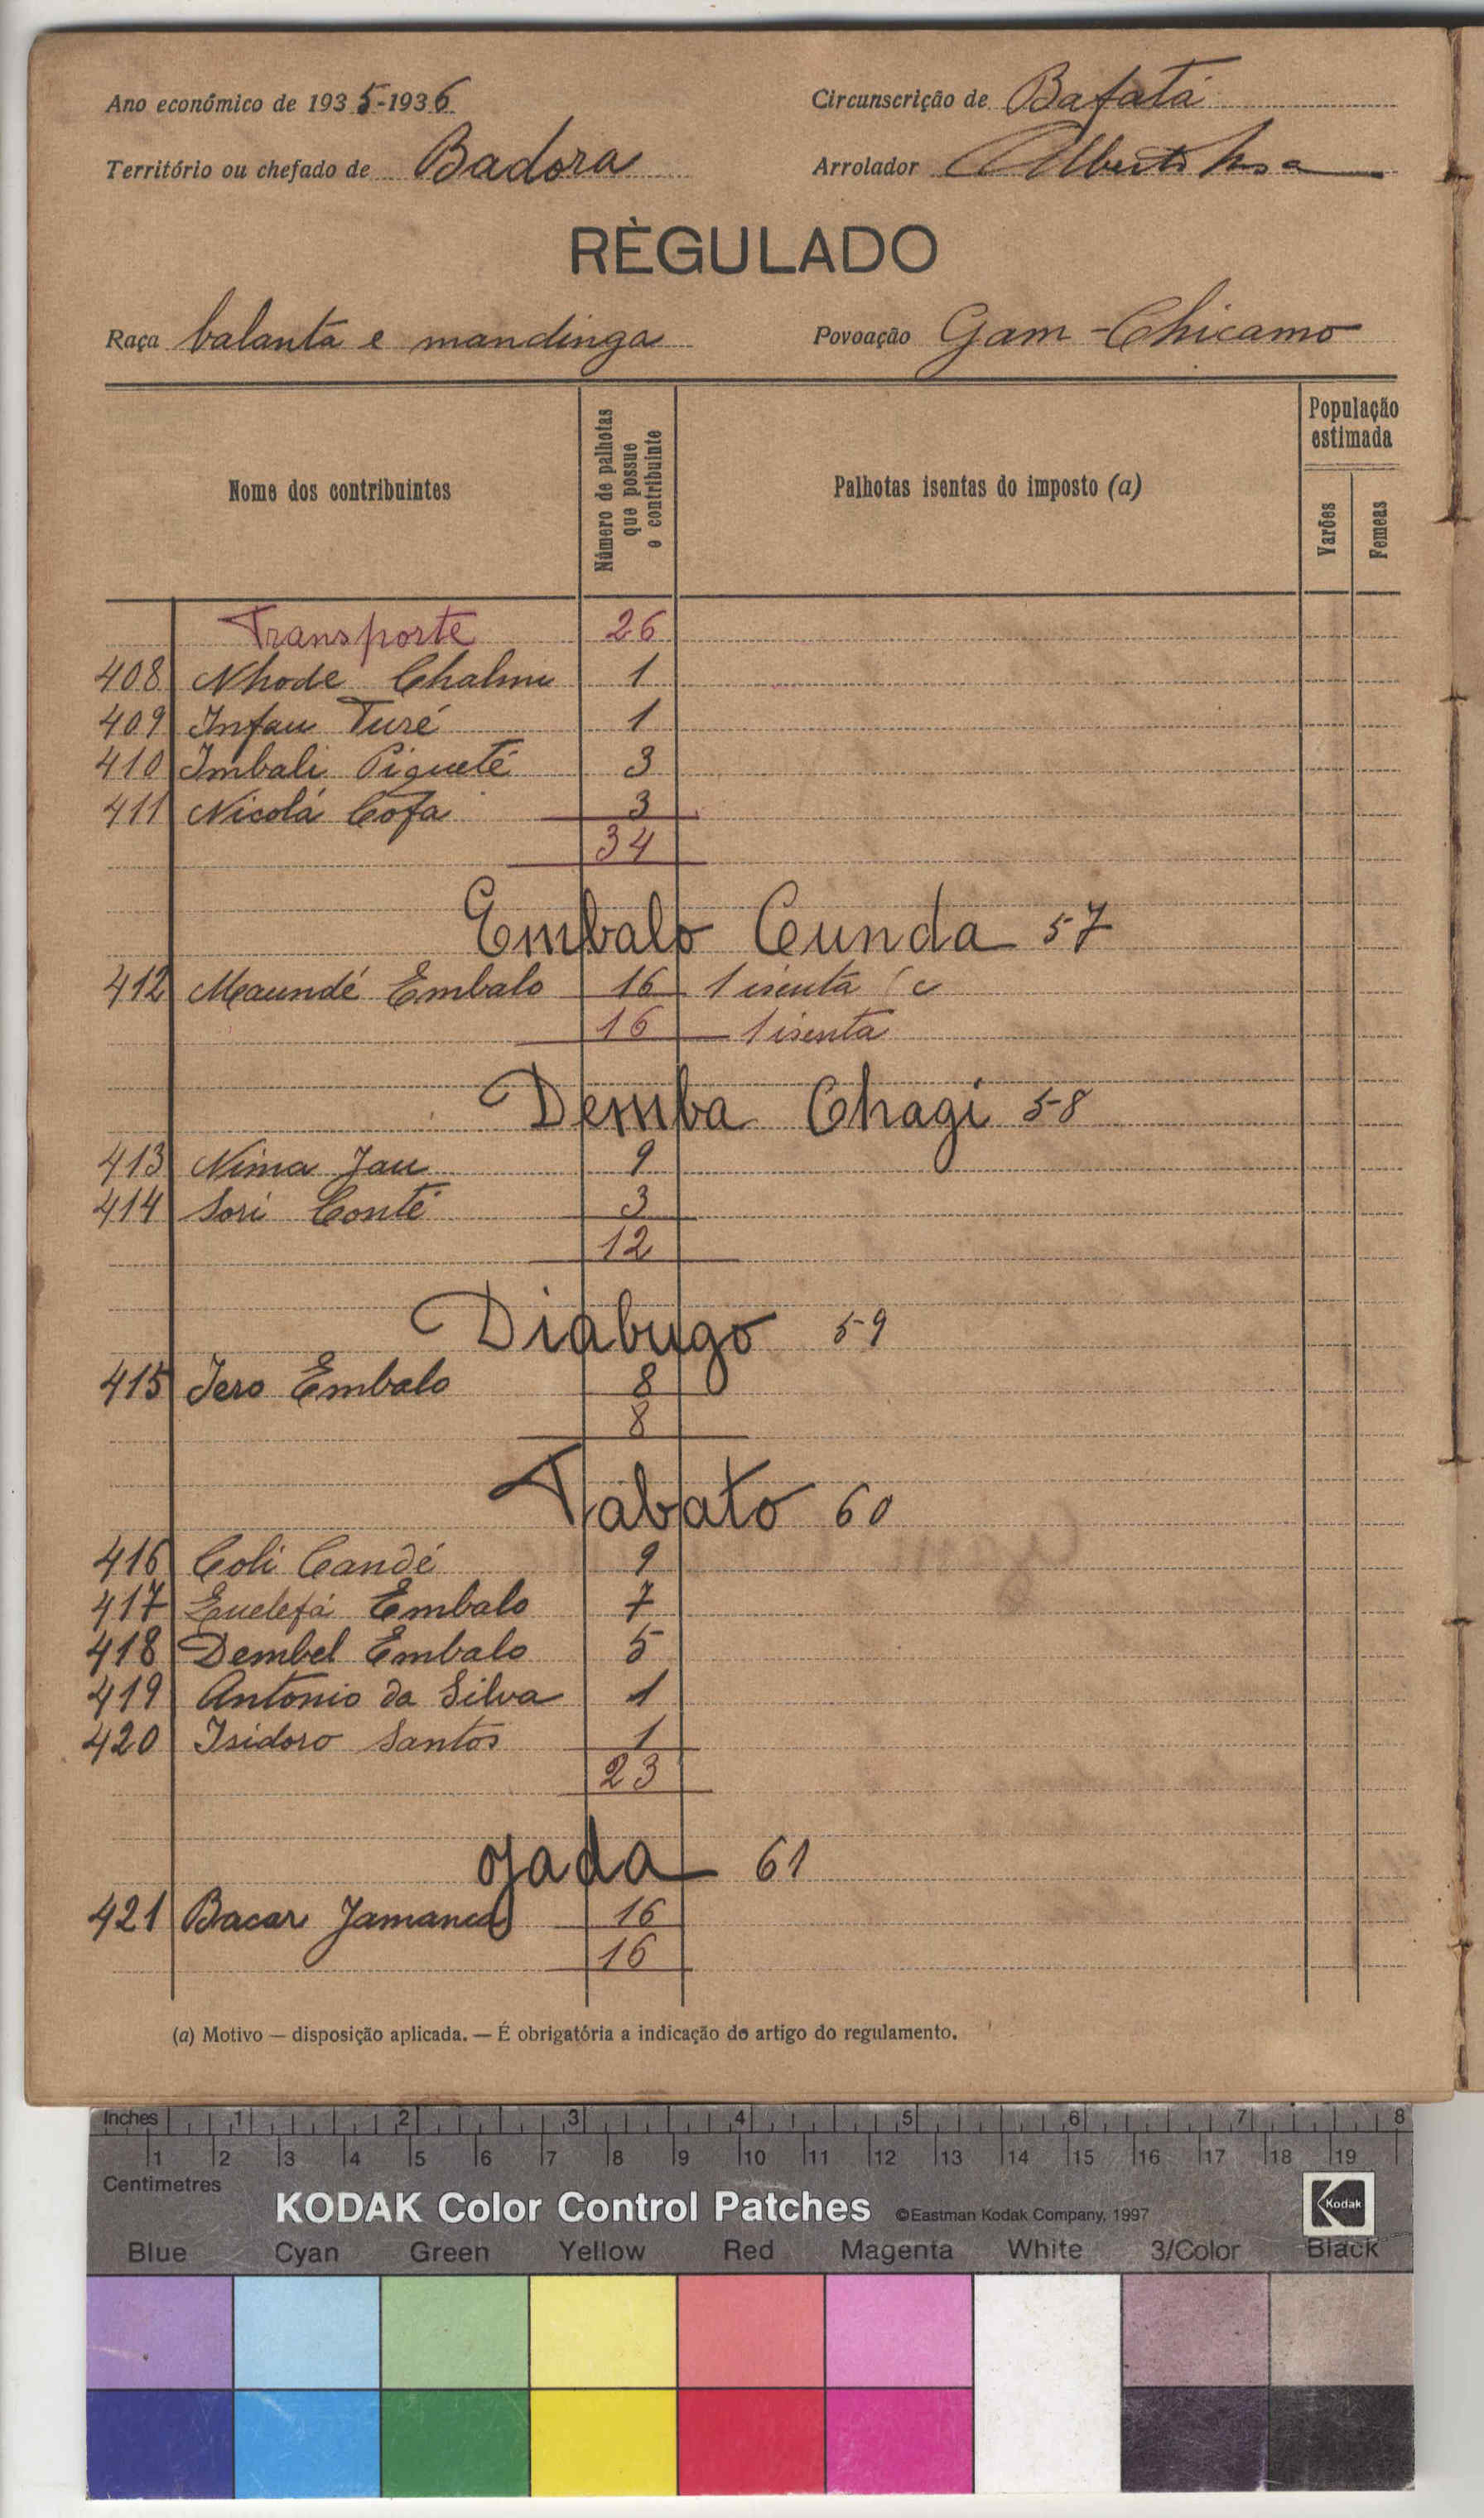 Ano económico de 1935-1936 Circunscrição de Bafatá
Território ou chefado de Badora Arrolador Alberto
RÈGULADO
Raça balanta e mandinga Povoação Gam-Chicamo
Nome dos contribuintes
Número de palhotas que possue o contribuinte
Palhotas isentas do imposto (a)
População estimada
Varões
Femeas
Transporte 26
408 Nhode 1
409 Infau Turé 1
410 Imbali Piqueté 3
411 Nicolá Cofa 3
34
Embalo Cunda 57
412 Maundé Embalo 16 1 isenta (c
16 1 isenta
Demba Chagi 58
413 Nima Jau 9
414 Sori Conté 3
12
Diabugo 59
415 Iero Embalo 8
8
Tabato 60
416 Coli Candé 9
417 Embalo 7
418 Dembel Embalo 5
419 Antonio da Silva 1
420 Isidoro Santos 1
23
Ojada 61
421 Bacar Jamanca 16
16
(a) Motivo — disposição aplicada. — É obrigatória a indicação do artigo do regulamento.
Inches 1 2 3 4 5 6 7 8
1 2 3 4 5 6 7 8 9 10 11 12 13 14 15 16 17 18 19
Centimetres
KODAK Color Control Patches ©Eastman Kodak Company, 1997 Kodak
Blue Cyan Green Yellow Red Magenta White 3/Color Black